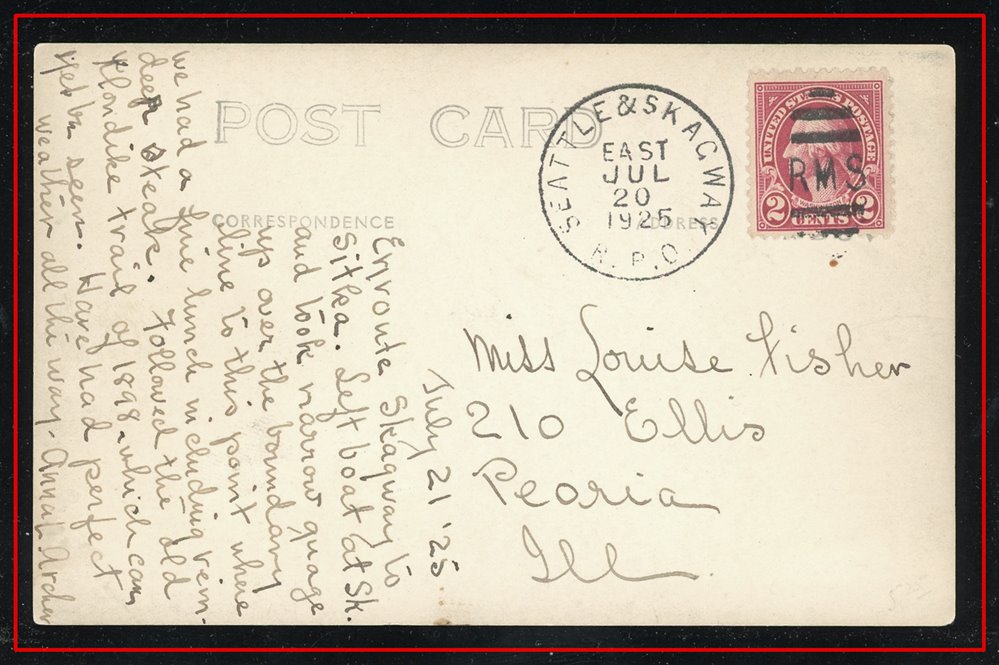 POST CARD
CORRESPONDENCE
ADDRESS
SEATTLE & SKAGWAY
EAST
JUL
20
1925
R.P.O.
UNITED STATES POSTAGE
RMS
2 CENTS 2
Miss Louise Fisher
210 Ellis
Peoria
Ill.
July 21 '25
Enroute Skagway to
Sitka. Left boat at Sk.
and took narrow guage
up over the boundary
line to this point where
we had a fine lunch including rein-
deer steak. Followed the old
Klondike trail of 1898 which can
yet be seen. Have had perfect
weather all the way - Anna L. Archer